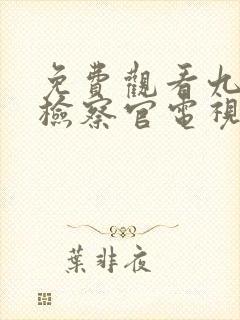 免費觀看九
檢察官電視
葉非夜